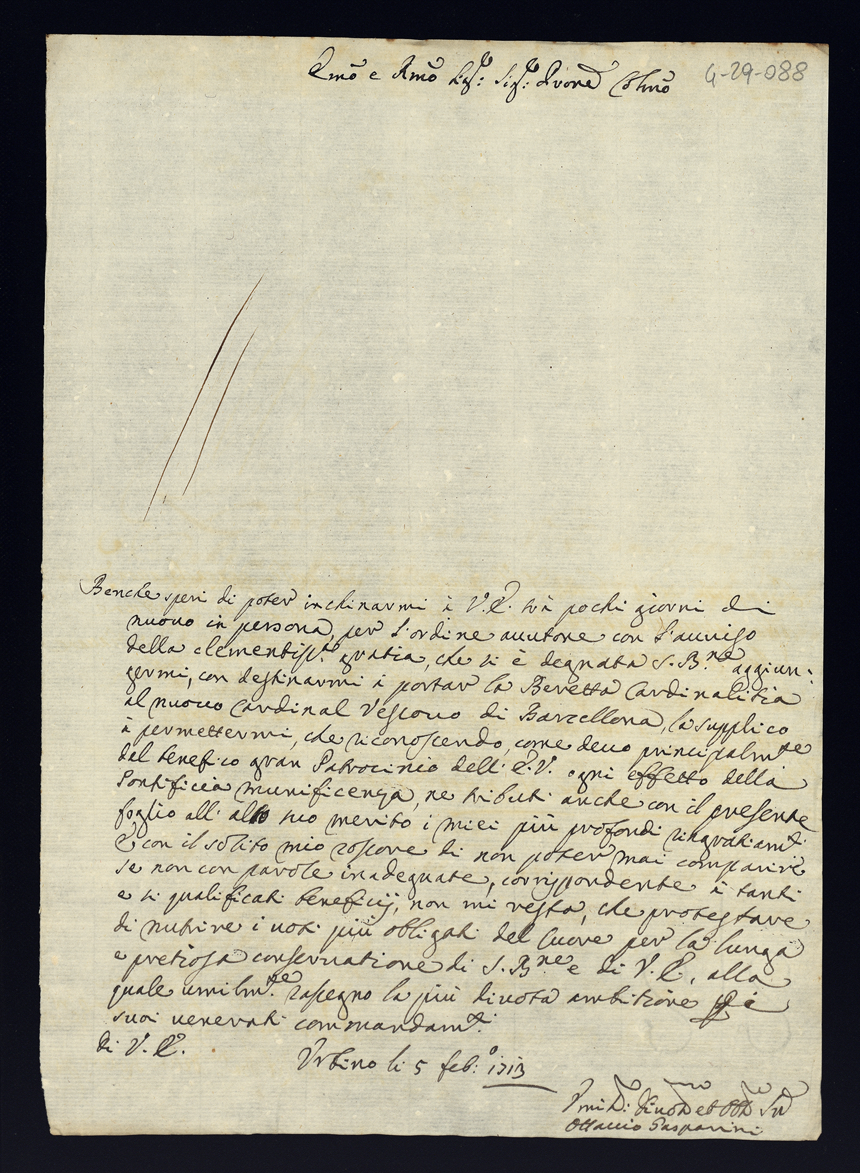 Emõ e Rmõ Sig.re Sig.re Pron̄e Colmõ
4-29-088
Benche speri di poter inchinarmi à V.E. trà pochi giorni di
nuovo in persona, per l'ordine avutone con l'avviso
della clementiss.ma gratia, che si è degnata S. B.ne aggiun:
germi, con destinarmi à portar la Beretta Cardinalitia
al nuovo Cardinal Vescovo di Barcellona, la supplico
à permettermi, che riconoscendo, come devo principalm.te
dal benefico gran Patrocinio dell'E.V. ogni effetto della
Pontificia munificenza, ne tributi anche con il presente
foglio all' alto suo merito i miei più profondi ringratiam.ti
E con il solito mio rossore di non poter mai comparire
se non con parole inadeguate, corrispondente à tanti
e si qualificati beneficij, non mi resta, che protestare
di nutrire i voti più obligati del Cuore per la lunga
e pretiosa conservatione di S. B.ne e di V.E., alla
quale umilm.te rassegno la più divota ambitione
suoi venerati commandam.ti
Di V.E.
Urbino li 5 feb.o 1713
Ottavio Gasparini